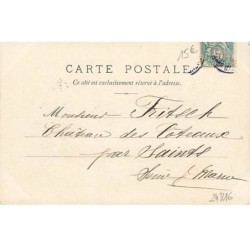 15€
CARTE POSTALE
Ce côté est exclusivement réservé à l'adresse.
Monsieur Fritsch
Château des Coteaux
par Saints
Seine & Marne
24816